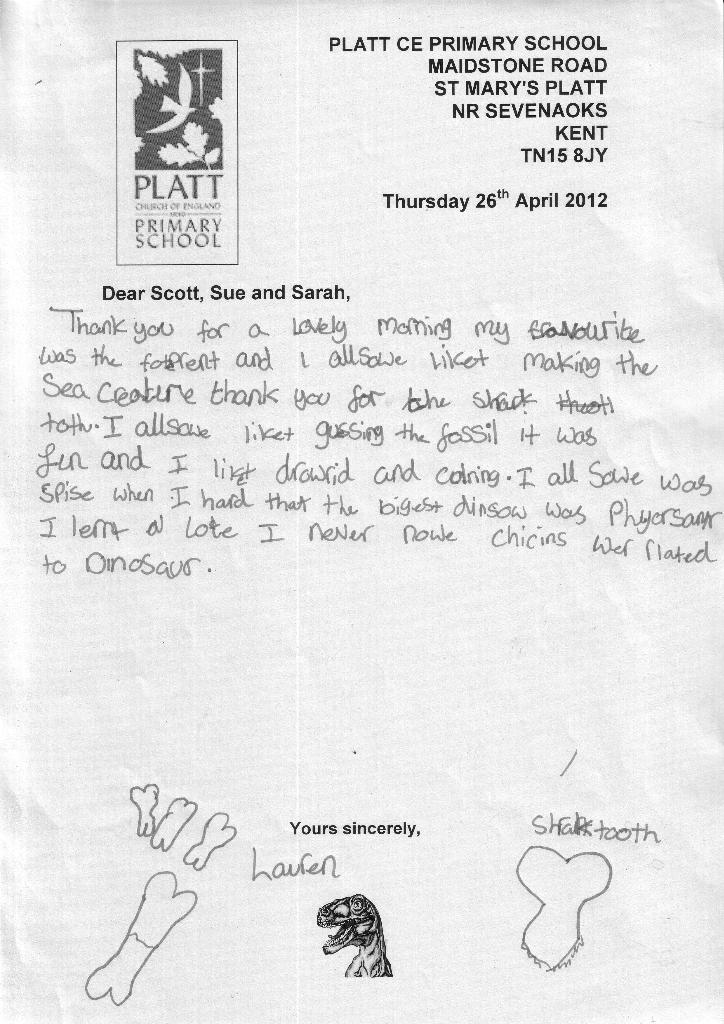 PLATT CE PRIMARY SCHOOL
MAIDSTONE ROAD
ST MARY'S PLATT
NR SEVENAOKS
KENT
TN15 8JY
Thursday 26th April 2012
PLATT
CHURCH OF ENGLAND
PRIMARY
SCHOOL
Dear Scott, Sue and Sarah,
Thank you for a Lovely morning my favourite
was the fotprent and I allsowe liket making the
Sea Creature thank you for the shark
toth. I allsowe liket gussing the fossil it was
fun and I likt drowrid and colring. I all sowe was
spise when I hard that the bigest dinsow was Phyorsanr
I lernt a Lote I never nowe chicins wer rlated
to Dinosaur.
Yours sincerely,
Lauren
Shark tooth